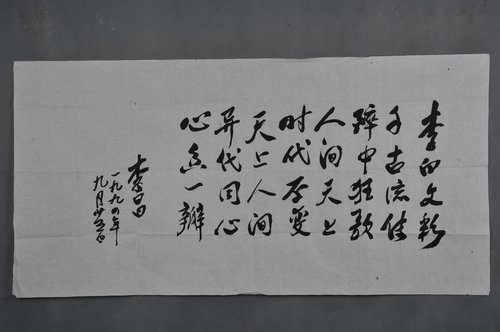 李白文彩
千古流传
醉中狂歌
人间天上
时代丕变
天上人间
异代同心
心香一瓣
李
一九九〇年
九月廿五日